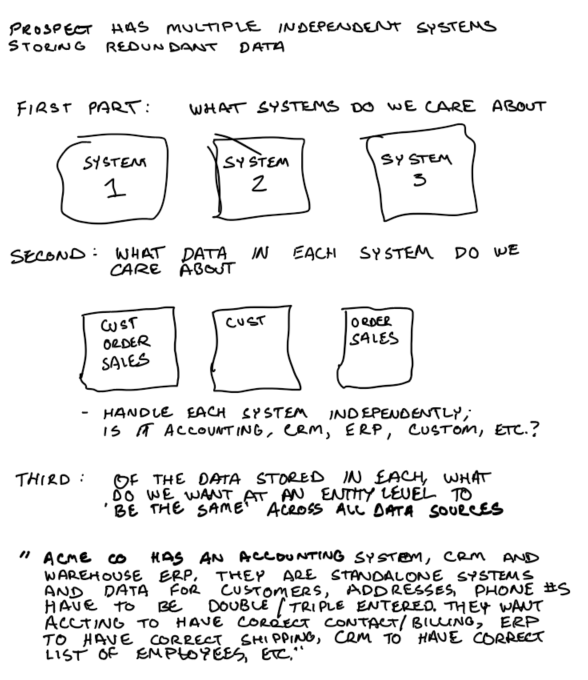 PROSPECT HAS MULTIPLE INDEPENDENT SYSTEMS
STORING REDUNDANT DATA
FIRST PART: WHAT SYSTEMS DO WE CARE ABOUT
SYSTEM
1
SYSTEM
2
SYSTEM
3
SECOND: WHAT DATA IN EACH SYSTEM DO WE
CARE ABOUT
CUST
ORDER
SALES
CUST
ORDER
SALES
- HANDLE EACH SYSTEM INDEPENDENTLY;
IS IT ACCOUNTING, CRM, ERP, CUSTOM, ETC.?
THIRD: OF THE DATA STORED IN EACH, WHAT
DO WE WANT AT AN ENTITY LEVEL TO
'BE THE SAME' ACROSS ALL DATA SOURCES
"ACME CO HAS AN ACCOUNTING SYSTEM, CRM AND
WAREHOUSE ERP. THEY ARE STANDALONE SYSTEMS
AND DATA FOR CUSTOMERS, ADDRESSES, PHONE #S
HAVE TO BE DOUBLE/TRIPLE ENTERED. THEY WANT
ACCTING TO HAVE CORRECT CONTACT/BILLING, ERP
TO HAVE CORRECT SHIPPING, CRM TO HAVE CORRECT
LIST OF EMPLOYEES, ETC."